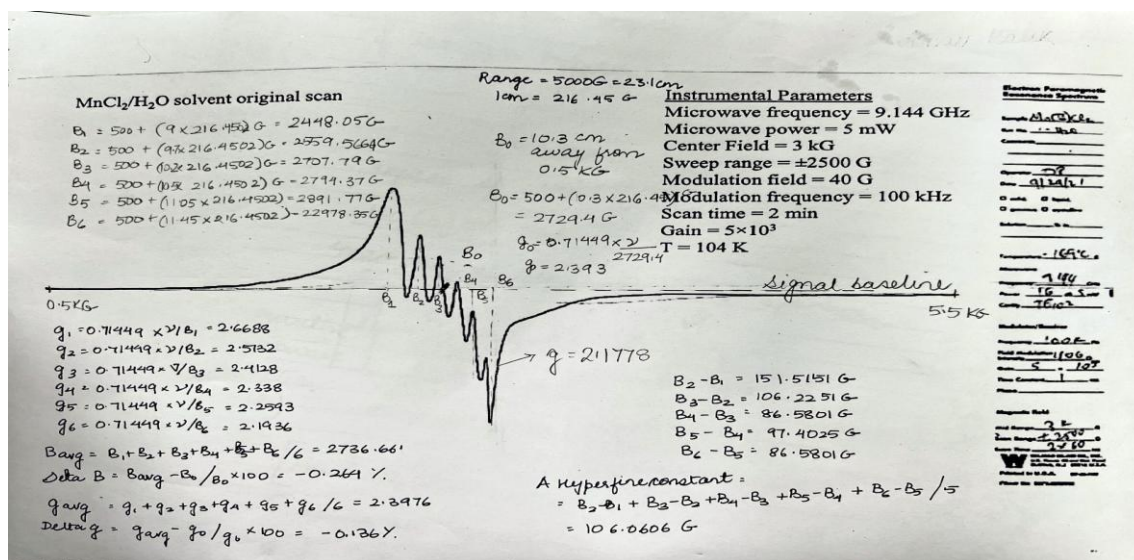 MnCl₂/H₂O solvent original scan
B₁ = 500 + (9 x 216.4502) G = 2448.05G
B₂ = 500 + (9.7x 216.4502)G = 2559.5664G
B₃ = 500 + (10.2x 216.4502)G = 2707.79G
B₄ = 500 + (10.5x 216.4502) G = 2794.37G
B₅ = 500 + (11.05 x 216.4502) = 2891.77G
B₆ = 500 + (11.45 x 216.4502) = 22978.35G
Range = 5000G = 23.1cm
1cm = 216.45 G
B₀ = 10.3 cm
away from
0.5 KG
B₀ = 500 + (0.3 x 216.45
= 2729.4 G
g₀ = 0.71449 x ν / 2729.4
g = 2.393
Instrumental Parameters
Microwave frequency = 9.144 GHz
Microwave power = 5 mW
Center Field = 3 kG
Sweep range = ±2500 G
Modulation field = 40 G
Modulation frequency = 100 kHz
Scan time = 2 min
Gain = 5×10³
T = 104 K
B₀
B₄
B₆
B₁
B₂
B₃
B₅
Signal baseline
0.5KG
5.5 KG
g = 2.1778
g₁ = 0.71449 x ν/B₁ = 2.6688
g₂ = 0.71449 x ν/B₂ = 2.5132
g₃ = 0.71449 x ν/B₃ = 2.4128
g₄ = 0.71449 x ν/B₄ = 2.338
g₅ = 0.71449 x ν/B₅ = 2.2593
g₆ = 0.71449 x ν/B₆ = 2.1936
Bavg = B₁+B₂+B₃+B₄+B₅+B₆/6 = 2736.661
Delta B = Bavg - B₀/B₀ x100 = -0.264 %.
gavg = g₁+g₂+g₃+g₄+g₅+g₆/6 = 2.3976
Delta g = gavg - g₀/g₀ x 100 = -0.136%.
B₂-B₁ = 151.5151 G
B₃-B₂ = 106.2251G
B₄-B₃ = 86.5801G
B₅-B₄ = 97.4025G
B₆-B₅ = 86.5801G
A Hyperfine constant =
= B₂-B₁ + B₃-B₂ + B₄-B₃ + B₅-B₄ + B₆-B₅ /5
= 106.0606 G
Electron Paramagnetic
Resonance Spectrum